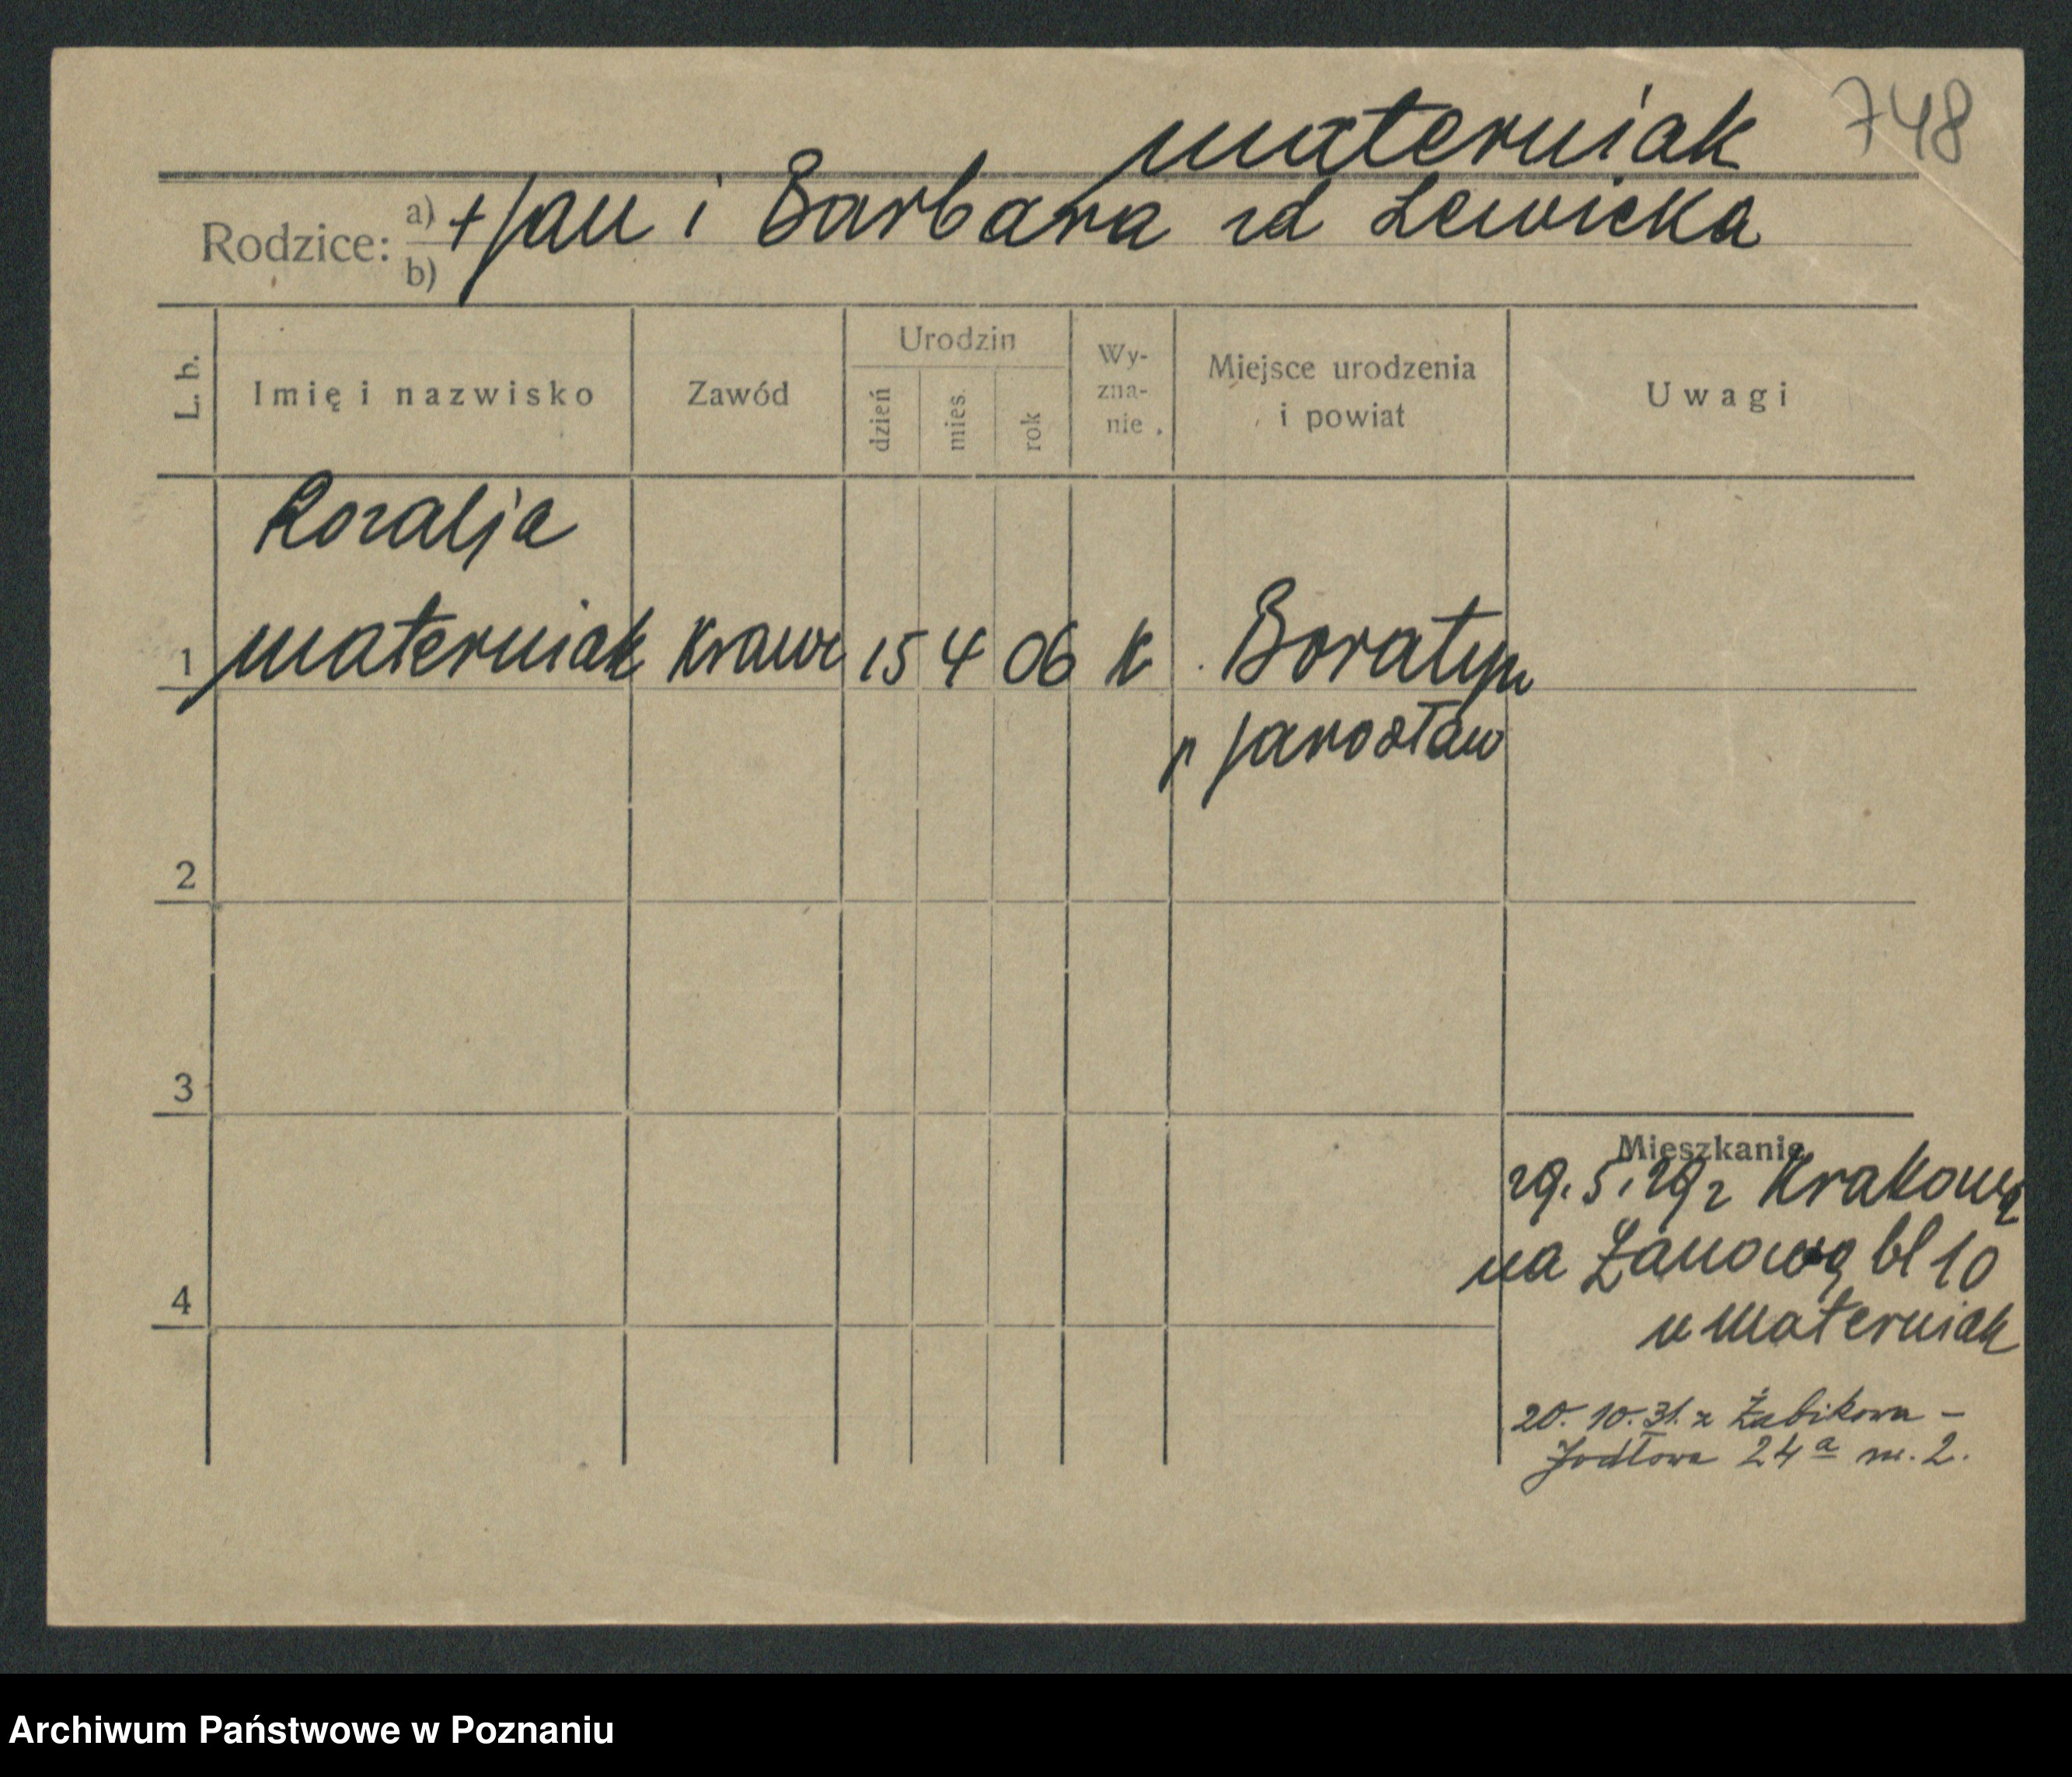 materniak 748
Rodzice: a) + Jan i Barbara zd Lewicka
b)
L. b. Imię i nazwisko Zawód Urodzin dzień mies. rok Wy-zna-nie Miejsce urodzenia i powiat Uwagi
Rozalja
1 materniak krawc 15 4 06 k Boratyn
p Jarosław
2
3
Mieszkanie
29.5.29 z Krakowa
na Łanową bl 10
4
u materniak
20.10.31. z Żabikowa –
Jodłowa 24a m. 2.
Archiwum Państwowe w Poznaniu